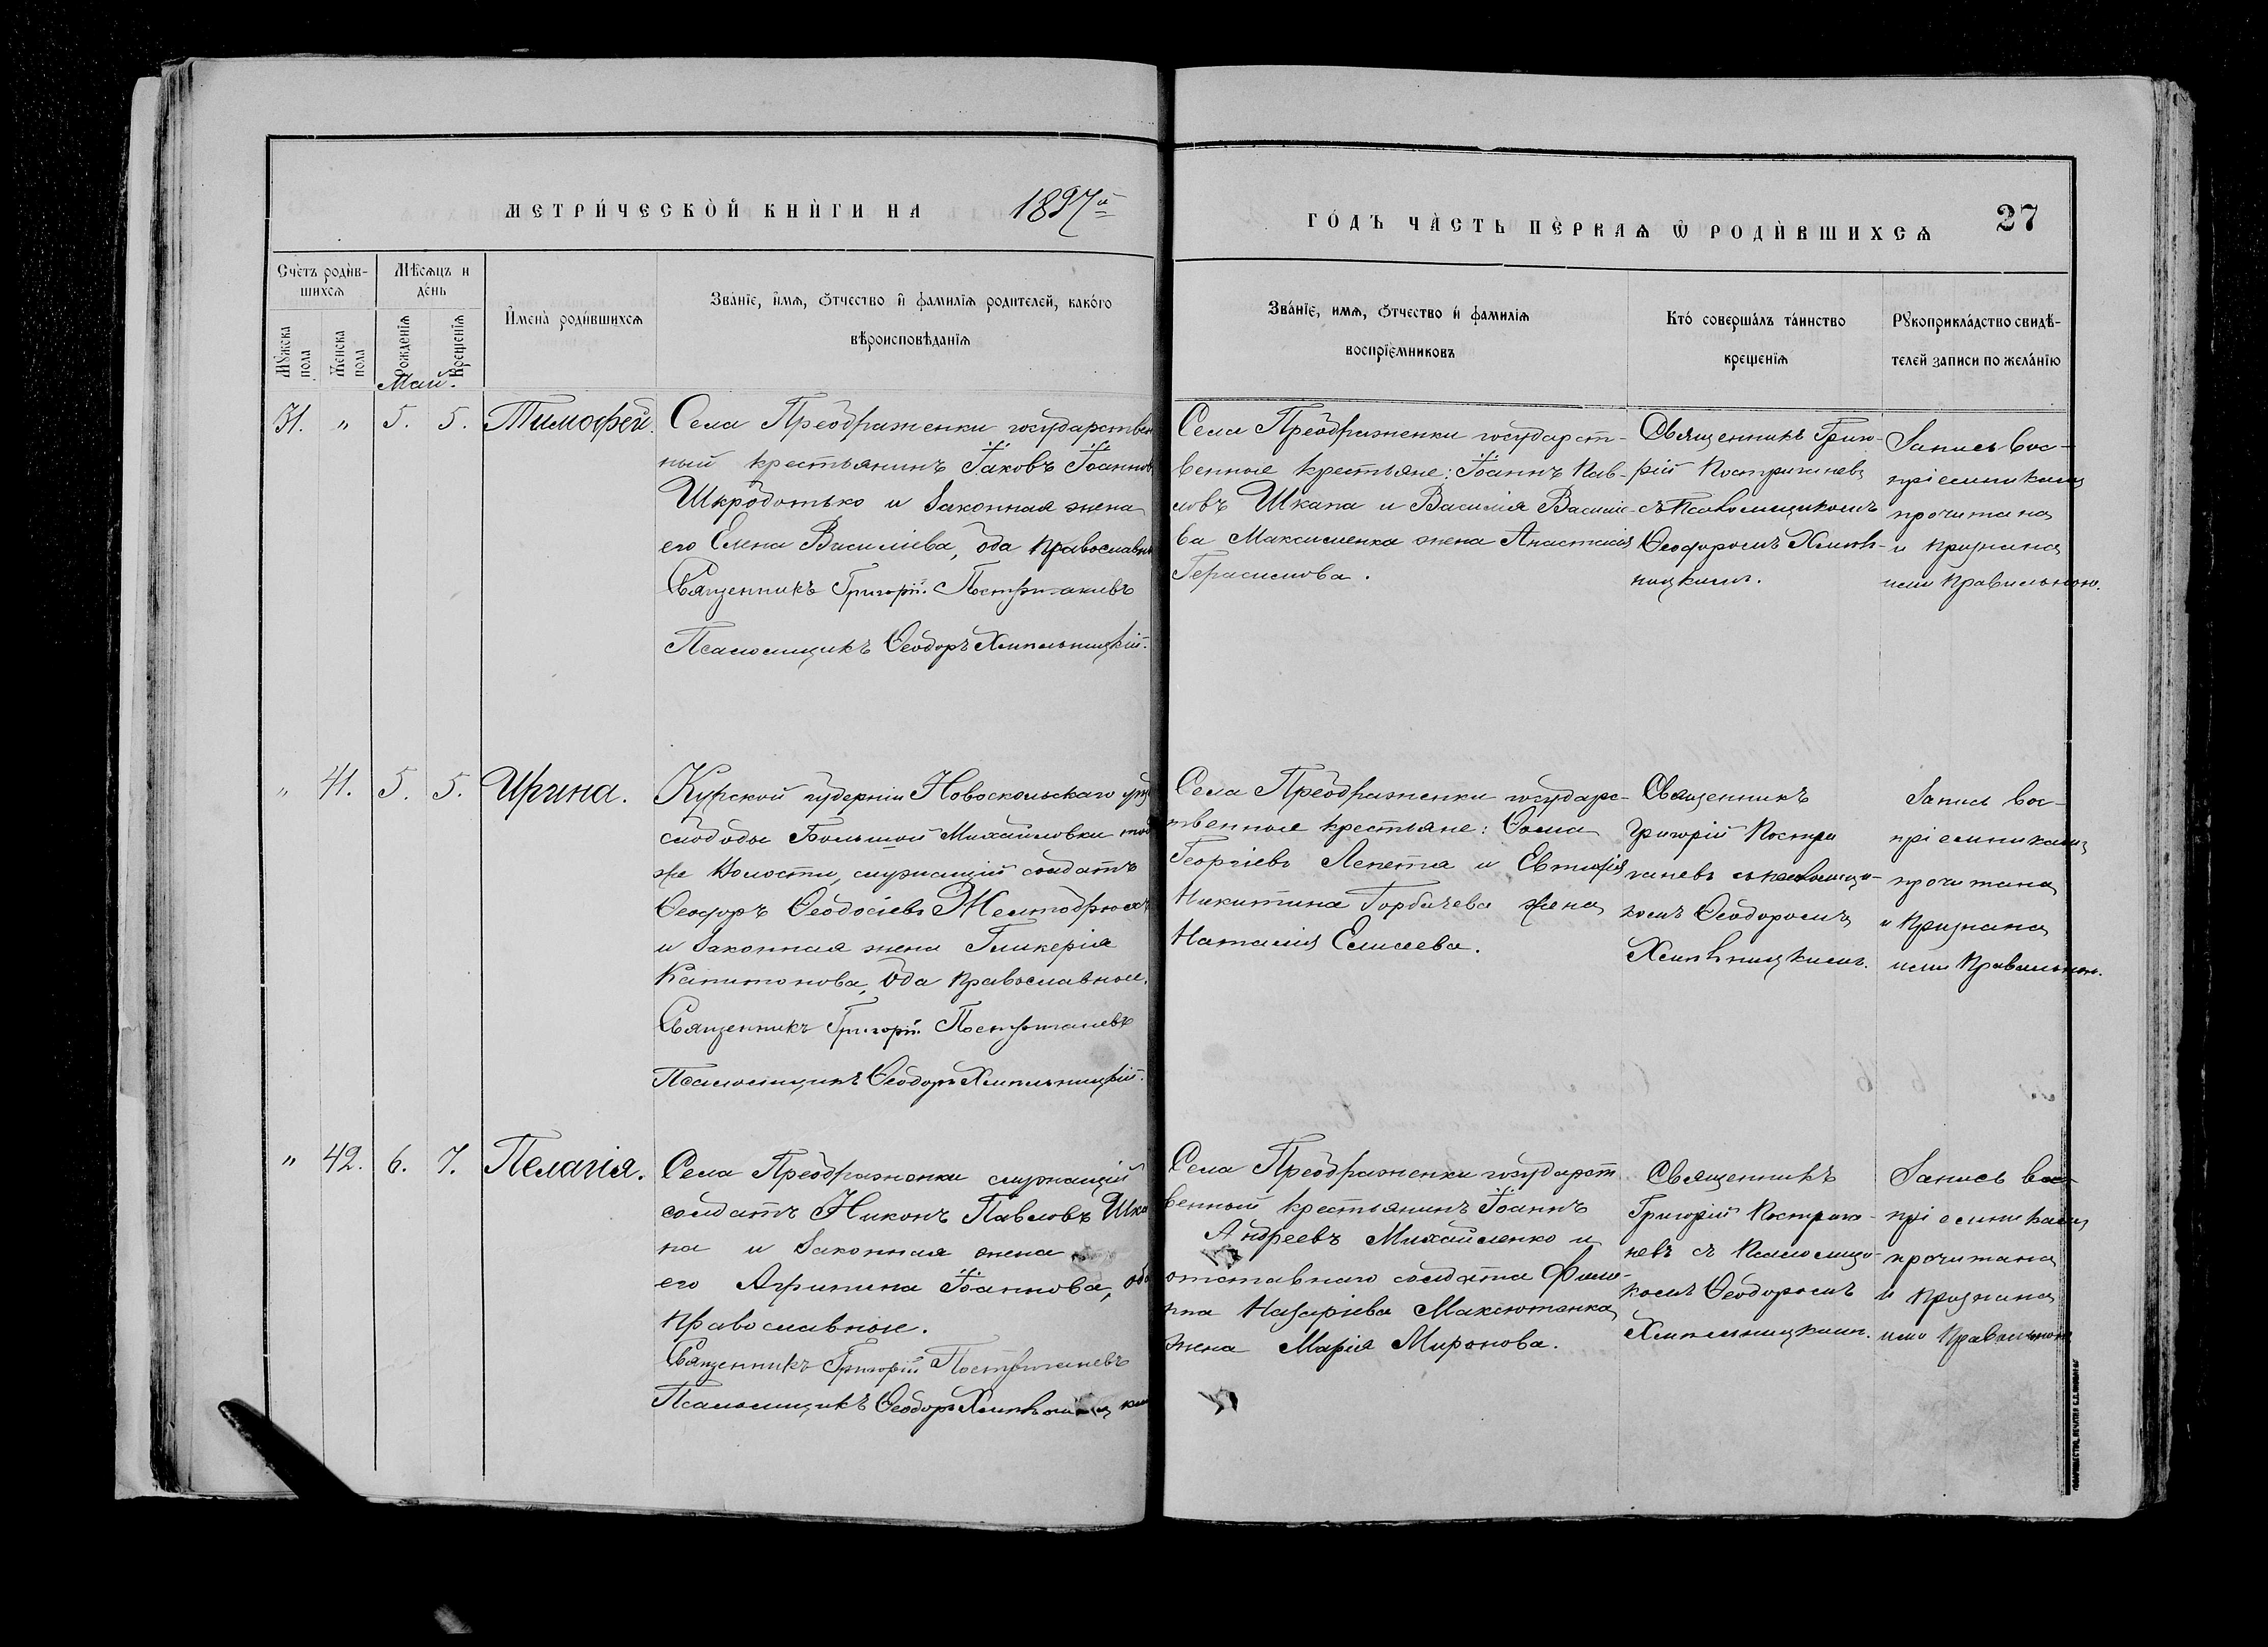 МЕТРИ́ЧЕСКОЙ КНИ́ГИ НА 1897й
ГО́ДЪ ЧА́СТЬ ПЕ́РВАЯ Ѡ РОДИ́ВШИХСЯ 27
Сче́тъ роди́в-
шихсѧ
Мѣ́сѧцъ и
де́нь
Мꙋжска
пола
Женска
пола
Рожденїѧ
Крещенїѧ
И҆мена̀ роди́вшихсѧ
Зва́нїе, и҆́мѧ, ѻ҆́тчество и҆ фамилїѧ родителей, како́го
вѣроисповѣ́данїѧ
Зва́нїе, имѧ, ѻ҆́тчество и҆ фамилїѧ
воспрїе́мниковъ
Кто́ соверша́лъ та́инство
креще́нїѧ
Рꙋкоприкла́дство свидѣ́-
телей записи по жела́нїю
Май.
31. " 5. 5. Тимофей.
Села Преображенки государствен
ный крестьянинъ Іаковъ Іоаннов
Шкроботько и законная жена
его Елена Василіева, оба православн
Священникъ Григорій
Псаломщикъ Ѳеодоръ Хмельницкій.
Села Преображенки государст-
венные крестьяне: Іоаннъ Пав-
ловъ Шкапа и Василія Василіе-
ва Максименка жена Анастасія
Герасимова.
Священникъ Григо-
рій
съ Псаломщикомъ
Ѳеодоромъ Хмель-
ницкимъ.
Запись вос-
пріемникамъ
прочитана
и признана
ими правильною.
" 41. 5. 5. Ирина.
Курской губерніи Новоскольскаго уѣз
слободы Большой Михайловки той
же волости, служащій солдатъ
Ѳеодоръ Ѳеодосіевъ Желтобрюхъ
и законная жена Гликерія
Капитонова, оба православные.
Священникъ Григорій
Псаломщикъ Ѳеодоръ Хмельницкій.
Села Преображенки государс-
твенные крестьяне: Ѳома
Георгіевъ Лепета и Евтихія
Никитина Горбачева жена
Наталія Елисеева.
Священникъ
Григорій
съ псаломщи-
комъ Ѳеодоромъ
Хмельницкимъ.
Запись вос-
пріемникамъ
прочитана
и признана
ими правильною.
" 42. 6. 7. Пелагія.
Села Преображенки служащій
солдатъ Никонъ Павловъ Шка
па и законная жена
его Агрипина Іоаннова, оба
православные.
Священникъ Григорій
Псаломщикъ Ѳеодоръ
Села Преображенки государст
венный крестьянинъ Іоаннъ
Андреевъ Михайленко и
отставнаго солдата Фили-
ппа Назаріева Максютенка
жена Марія Миронова.
Священникъ
Григорій
съ Псаломщи-
комъ Ѳеодоромъ
Хмельницкимъ.
Запись вос-
пріемникамъ
прочитана
и признана
ими правильною